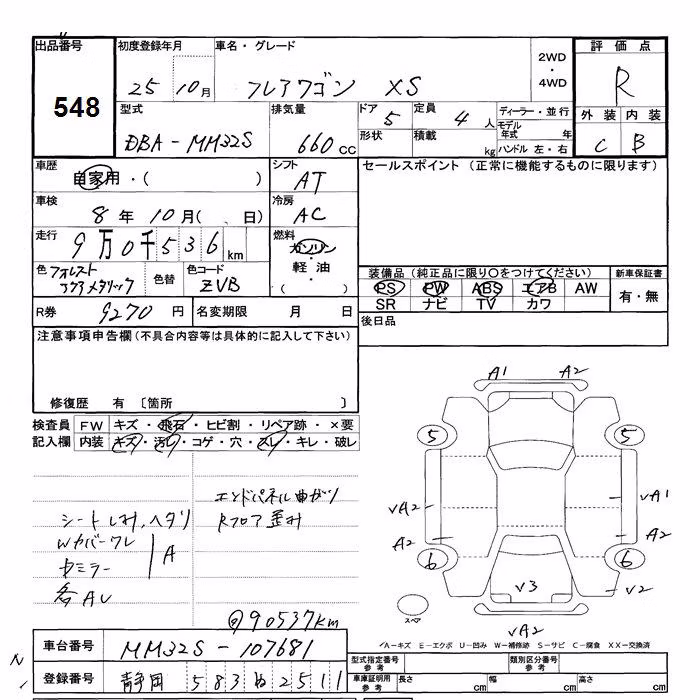 出品番号
548
初度登録年月
25 10月
車名・グレード
フレアワゴン XS
2WD
・
4WD
評価点
R
型式
DBA-MM32S
排気量
660cc
ドア
5
形状
定員
4人
積載
kg
ディーラー・並行
モデル年式 年
ハンドル 左・右
外装 内装
C B
車歴
自家用・( )
シフト
AT
セールスポイント (正常に機能するものに限ります)
車検
8年 10月( 日)
冷房
AC
走行
9万0千536km
燃料
ガソリン
・
軽油
・
( )
色 フォレスト
アクアメタリック
色替
色コード
ZVB
装備品(純正品に限り○をつけてください)
PS PW ABS エアB AW
SR ナビ TV カワ
新車保証書
有・無
R券 9270円
名変期限 月 日
後日品
注意事項申告欄(不具合内容等は具体的に記入して下さい)
修復歴 有 〔箇所 〕
検査員
記入欄
FW キズ・飛石・ヒビ割・リペア跡・×要
内装 キズ・汚レ・コゲ・穴・スレ・キレ・破レ
シートしみ、ヘタリ
Wカバーワレ
サミラー A
各AU
エンドパネル曲がり
Rフロア歪み
90537km
A1 A2
5 5
√A2 √A1
A2 A2
6 6
√3
√2
√A2
スペア
A-キズ E-エクボ U-凹み W-補修跡 S-サビ C-腐食 XX-交換済
車台番号 MM32S-107681
登録番号 静岡 583 ぬ 2511
型式指定番号
参考
類別区分番号
参考
車庫証明用
参考
長さ cm
幅 cm
高さ cm